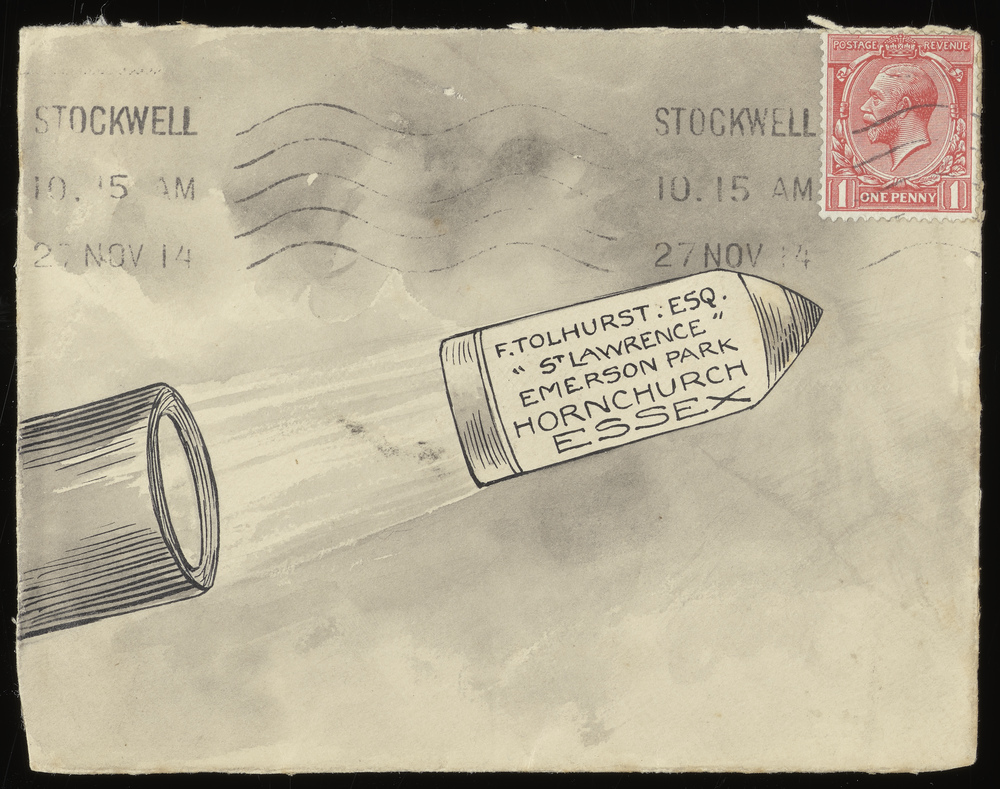 POSTAGE REVENUE
STOCKWELL STOCKWELL
10. 15 AM 10. 15 AM
27 NOV 14 27 NOV 14
1 ONE PENNY 1
F. TOLHURST: ESQ.
"ST LAWRENCE"
EMERSON PARK
HORNCHURCH
ESSEX